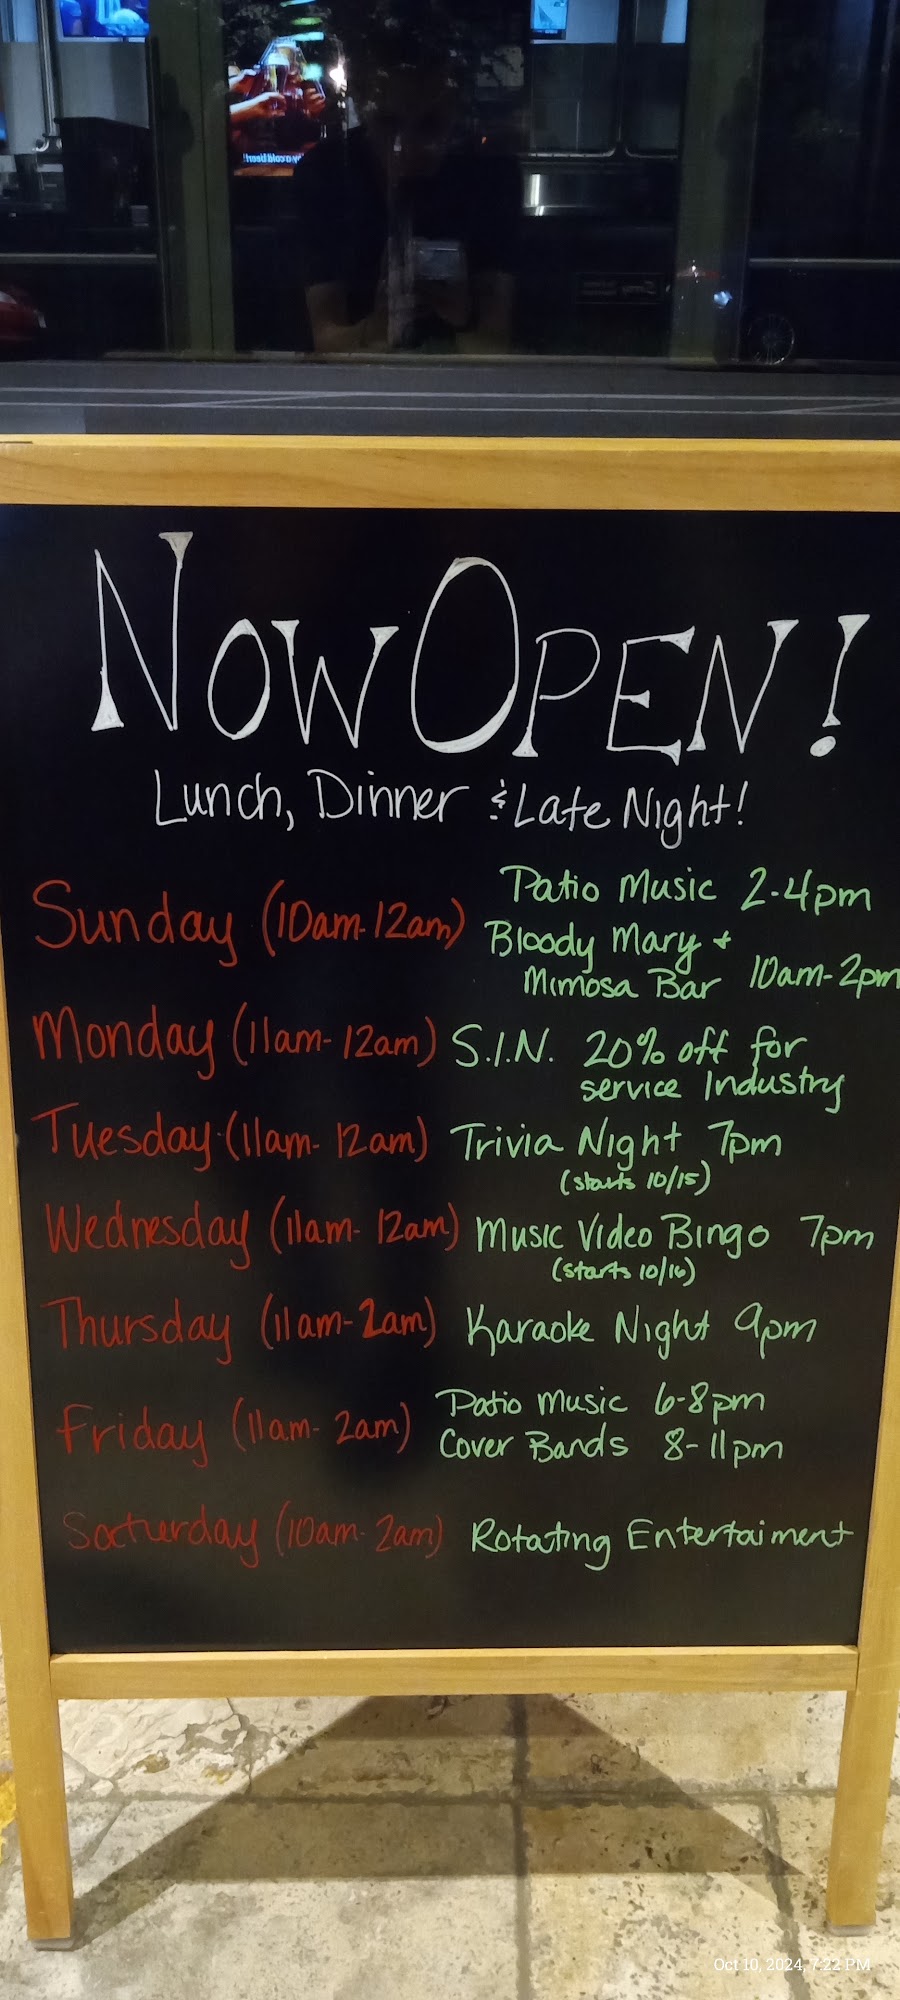 y a cold beer!
Now Open!
Lunch, Dinner & Late Night!
Sunday (10am-12am) Patio Music 2-4pm
Bloody Mary +
Mimosa Bar 10am-2pm
Monday (11am-12am) S.I.N. 20% off for
service Industry
Tuesday (11am-12am) Trivia Night 7pm
(starts 10/15)
Wednesday (11am-12am) Music Video Bingo 7pm
(starts 10/16)
Thursday (11am-2am) Karaoke Night 9pm
Friday (11am-2am) Patio Music 6-8pm
Cover Bands 8-11pm
Saturday (10am-2am) Rotating Entertaiment
Oct 10, 2024, 7:22 PM